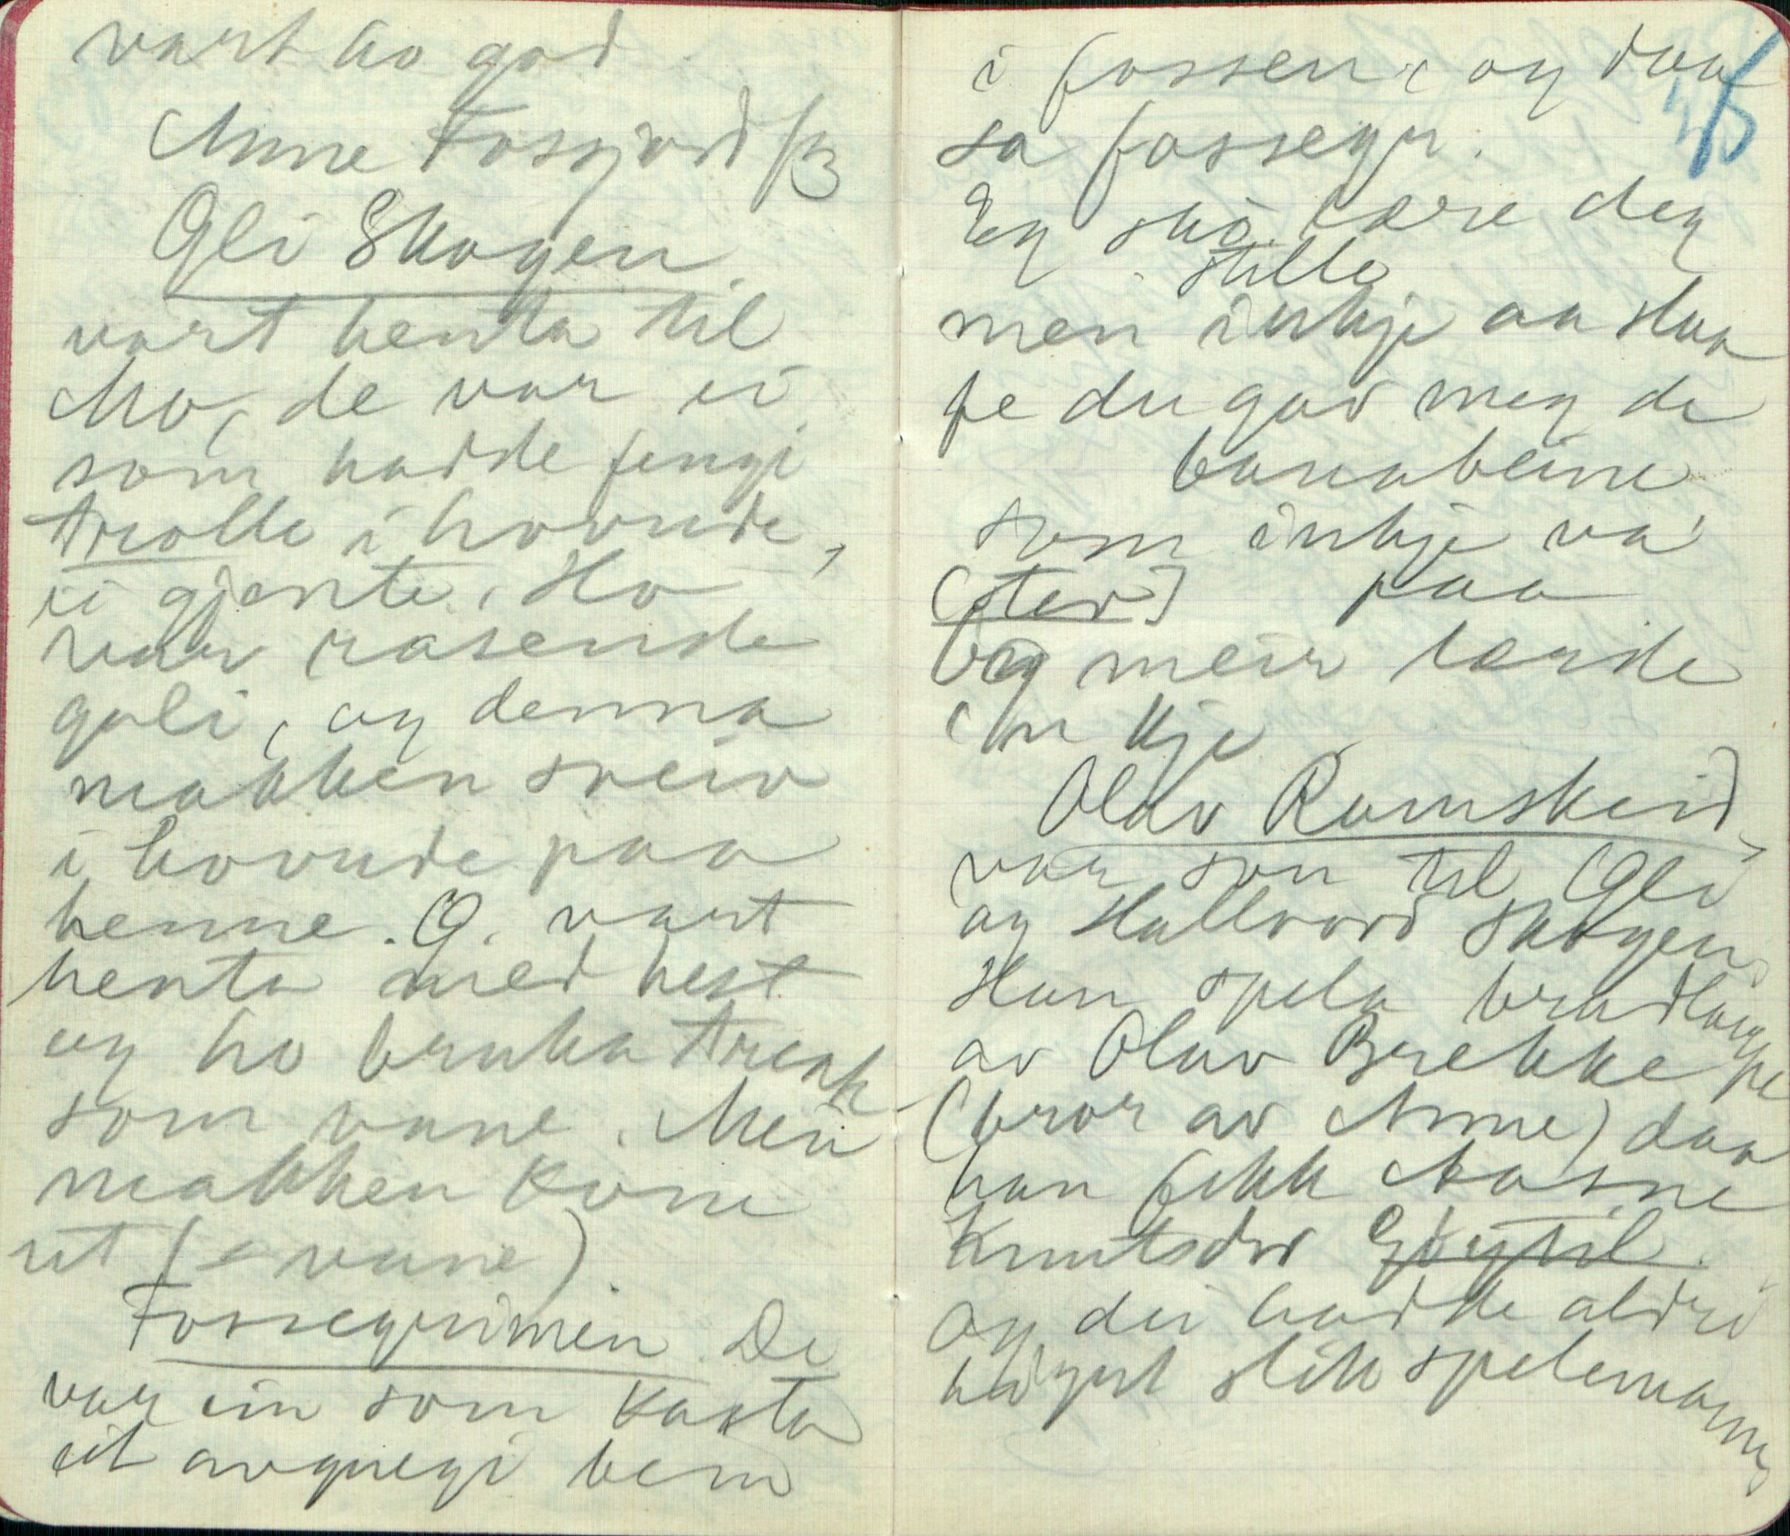 vart ho god.
Anne Fosjord fk
Gli Skogen
vart henta til
Mo, de var ei
som hadde fengi
trolle i hovude,
ei gjente. Ho
var rasende
gali, og denna
makken sveiv
i hovude paa
henne. G. vart
henta med hest
og ho bruka treak
som vane. Men
makken kom
ut (= vane).
Fossegrimen. De
var ein som kasta
eit avgnegi bein
i fossen, og daa
sa fossegr.
45
Eg ska lære deg
stille
men inkje aa slaa
fe du gav meg de
banabeine
som inkje va
[ster] paa
og meir lærde
'n kje
Olav Rumskeid
var son til Gli
og Hallvord Skogen.
Han spela brudlaupe
av Olav Brekke
(bror av Anne) daa
han fekk Aasne
Knutsdr
og dei hadde aldri
høyrt slik spelemann